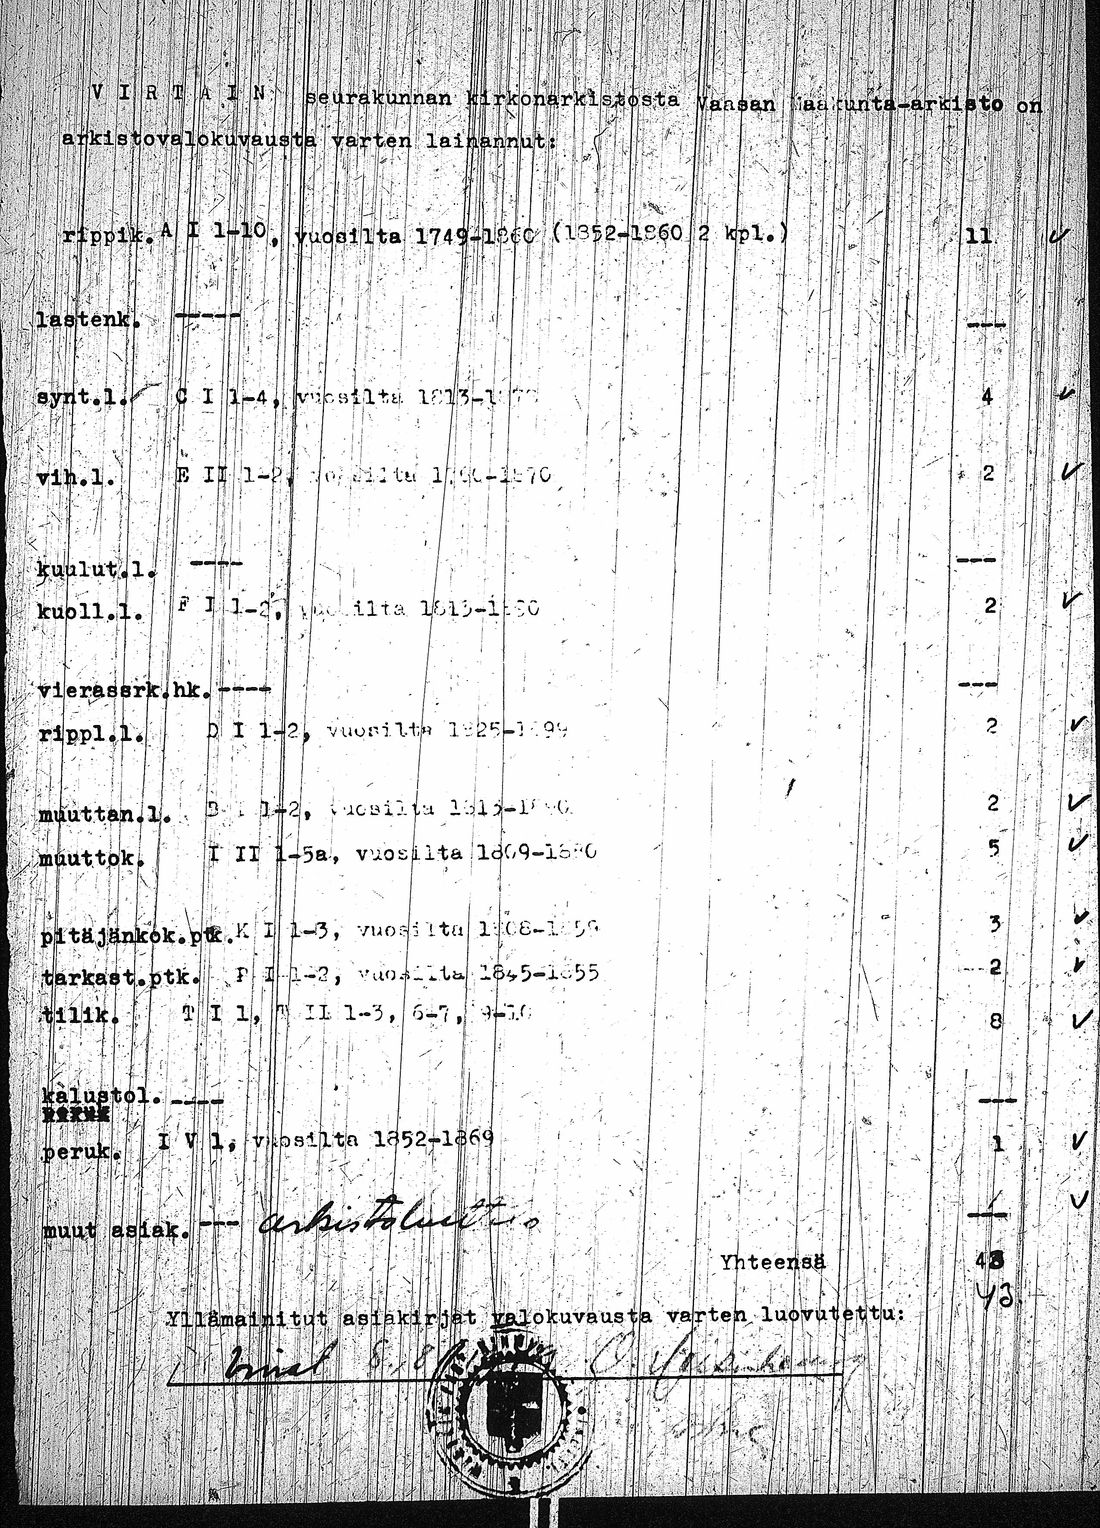 V I R T A I N seurakunnan kirkonarkistosta Vaasan maakunta-arkisto on
arkistovalokuvausta varten lainannut:
rippik. A I 1-10, vuosilta 1749-1860 (1852-1860 2 kpl.) 11 ✓
lastenk. ----- ---
synt.l. ✓ C I 1-4, vuosilta 1813-1878 4 ✓
vih.l. E II 1-2, vuosilta 2 ✓
kuulut.l. ---- ---
kuoll.l. F I 1-2, vuosilta 2 ✓
vierassrk.hk. ---- ---
rippl.l. D I 1-2, vuosilta 1825-1899 2 ✓
muuttan.l. B I 1-2, vuosilta 2 ✓
muuttok. I II 1-5a, vuosilta 1809-1880 5 ✓
pitäjänkok.ptk. K I 1-3, vuosilta 3 ✓
tarkast.ptk. P I 1-2, vuosilta 1845-1855 2 ✓
tilik. T I 1, T II 1-3, 6-7, 9-10 8 ✓
kalustol. ---- ---
peruk. I V 1, vuosilta 1852-1869 1 ✓
muut asiak. --- arkistoluettelo 1 ✓
Yhteensä 43
43
Yllämainitut asiakirjat valokuvausta varten luovutettu: